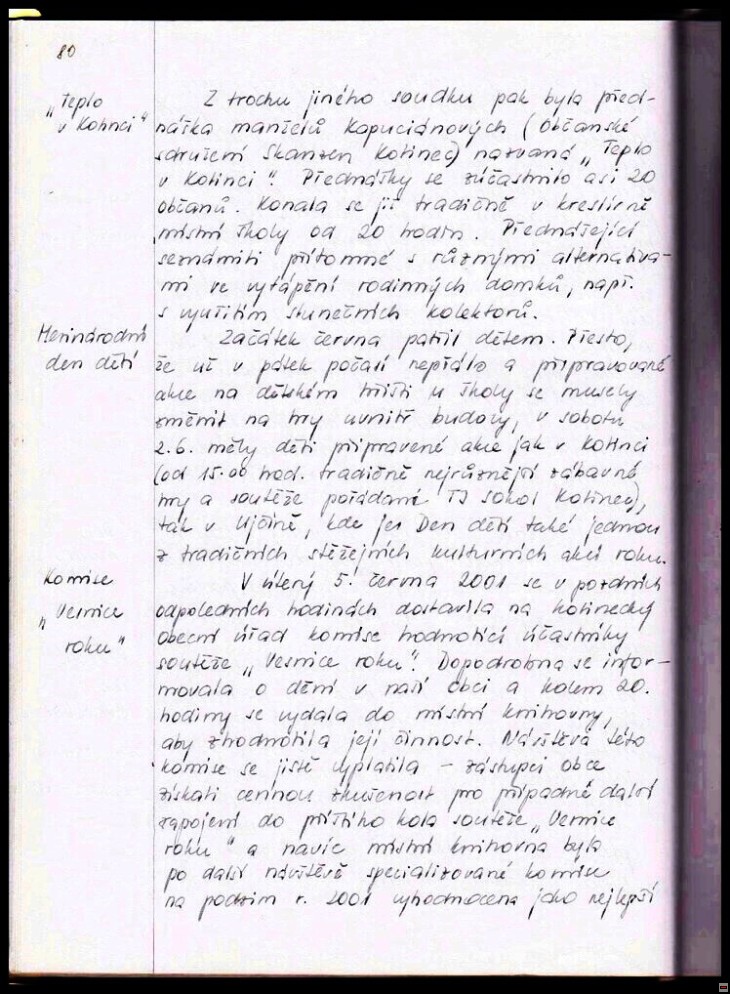 80
„Teplo
v Kotinci“
Z trochu jiného soudku pak byla před-
náška manželů Kapuciánových (Občanské
sdružení Skanzen Kotinec) nazvaná „Teplo
v Kotinci“. Přednášky se zúčastnilo asi 20
občanů. Konala se již tradičně v kreslírně
místní školy od 20 hodin. Přednášející
seznámili přítomné s různými alternativa-
mi ve vytápění rodinných domků, např.
s využitím slunečních kolektorů.
Mezinárodní
den dětí
Začátek června patřil dětem. Přesto,
že už v pátek počasí nepřálo a připravované
akce na dětském hřišti u školy se musely
změnit na hry uvnitř budovy, v sobotu
2.6. měly děti připravené akce jak v Kotinci
(od 15.00 hod. tradičně nejrůznější zábavné
hry a soutěže pořádané TJ Sokol Kotinec),
tak v Ujčíně, kde je Den dětí také jednou
z tradičních stěžejních kulturních akcí roku.
Komise
„Vesnice
roku“
V úterý 5. června 2001 se v pozdních
odpoledních hodinách dostavila na kotinecký
obecní úřad komise hodnotící účastníky
soutěže „Vesnice roku“. Dopodrobna se infor-
movala o dění v naší obci a kolem 20.
hodiny se vydala do místní knihovny,
aby zhodnotila její činnost. Návštěva této
komise se jistě vyplatila – zástupci obce
získali cennou zkušenost pro případné další
zapojení do příštího kola soutěže „Vesnice
roku“ a navíc místní knihovna byla
po další návštěvě specializované komise
na podzim r. 2001 vyhodnocena jako nejlepší